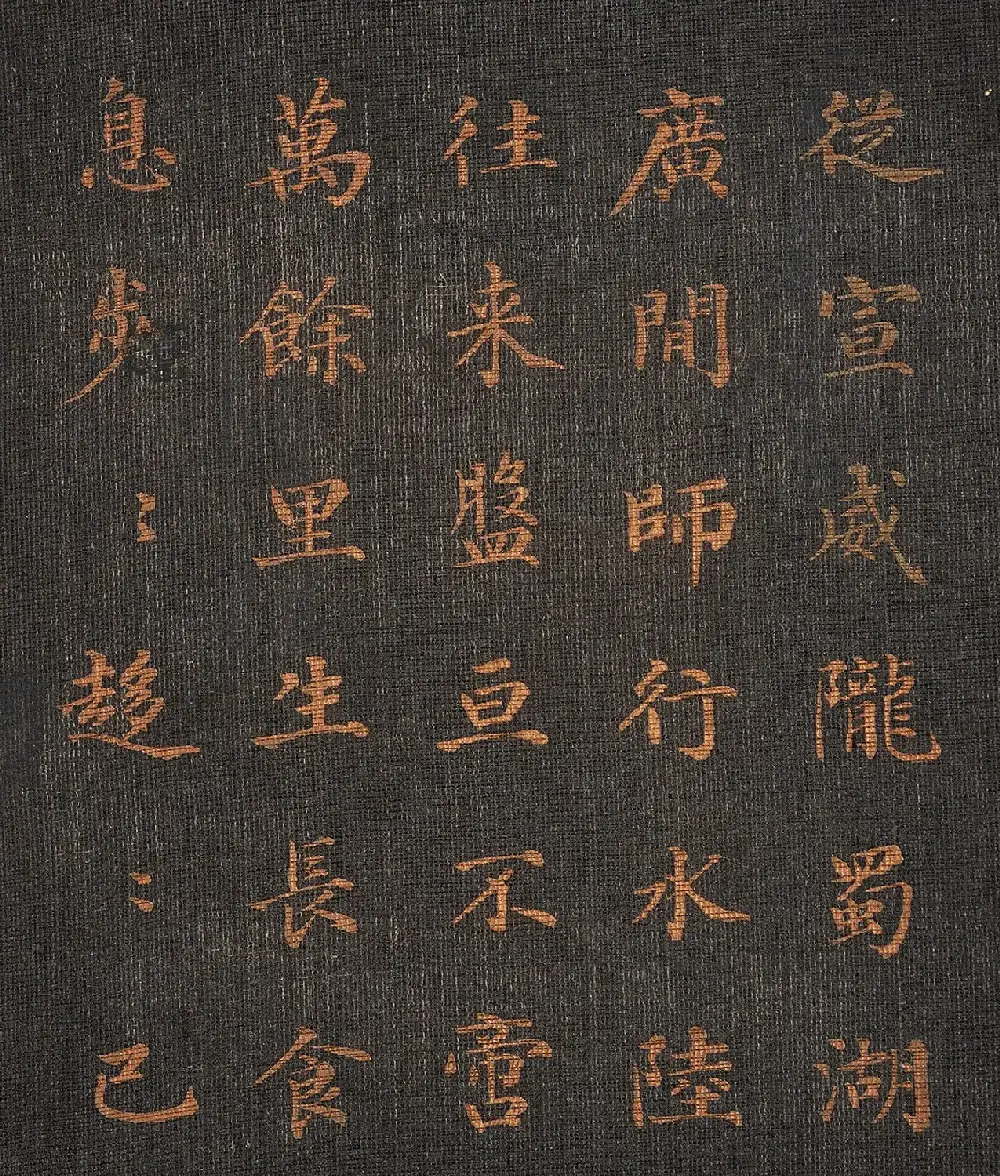 從宣威隴蜀湖
廣閒師行水陸
往来盤亘不啻
萬餘里生長食
息步〻趍〻己